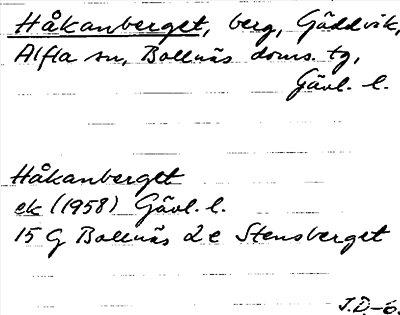 Håkanberget, berg, Gäddvik,
Alfta sn, Bollnäs doms. tg,
Gävl. l.
Håkanberget
ek (1958) Gävl. l.
15 G Bollnäs 2 e Stensberget
J.D.-6.